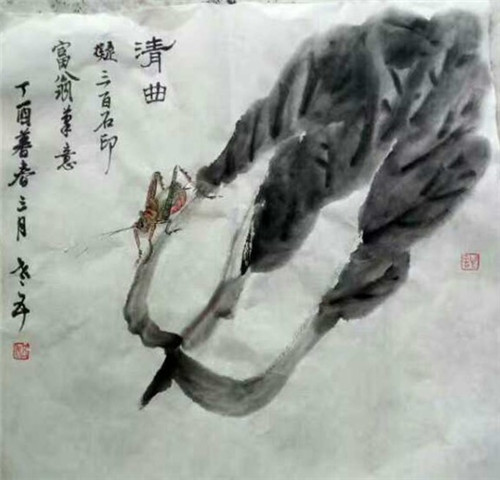 清曲
擬三百石印
富翁筆意
丁酉暮春三月